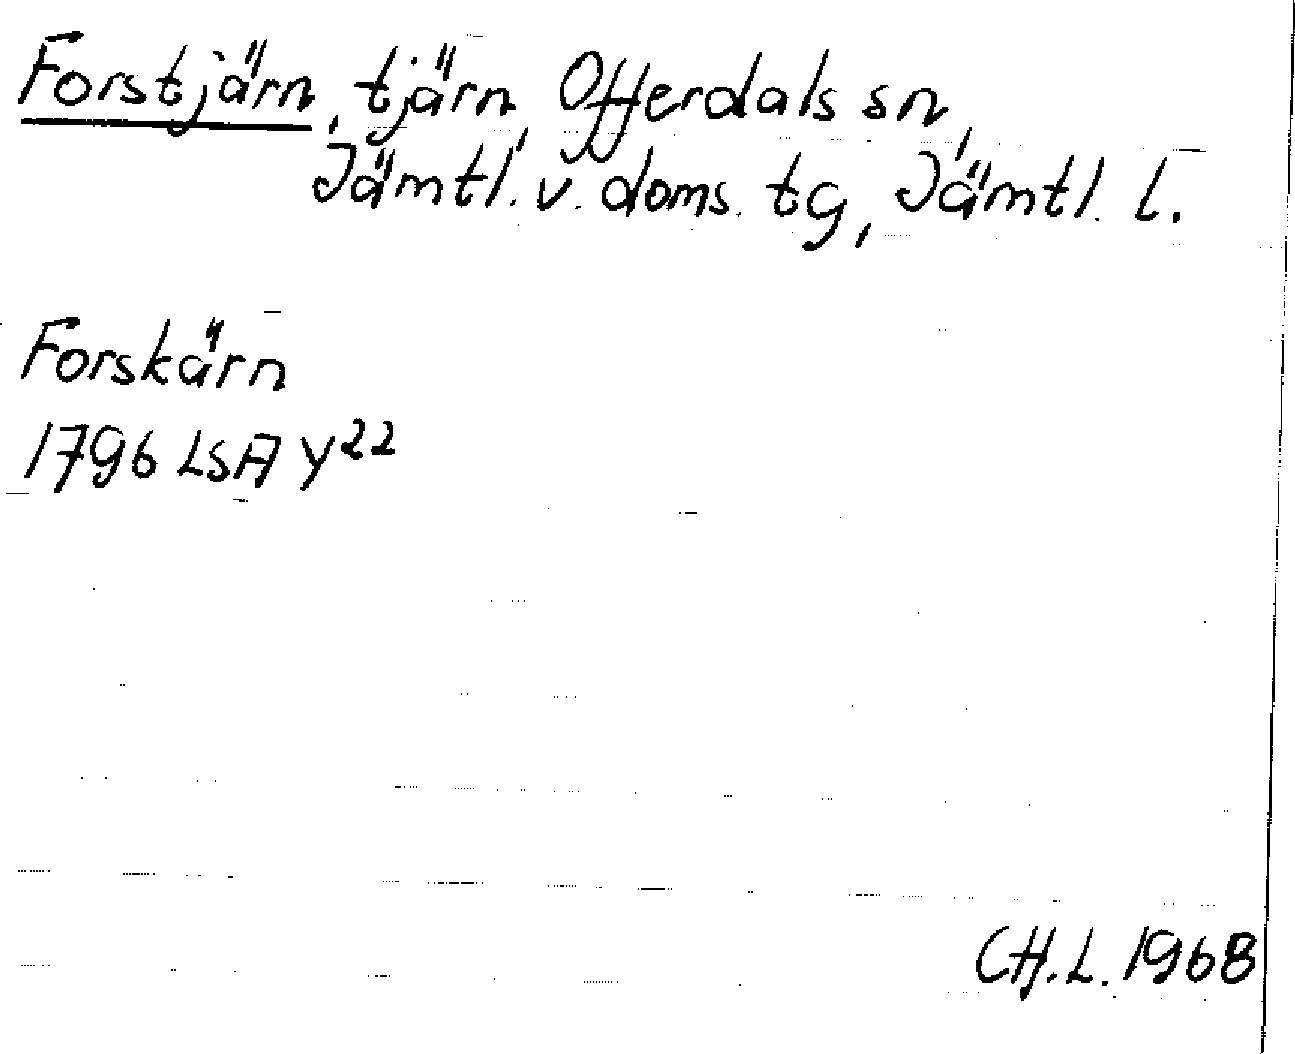 Forstjärn, tjärn, Offerdals sn,
Jämtl. v. doms. tg, Jämtl. l.
Forskärn
1796 LSA Y²²
CH.L. 1968